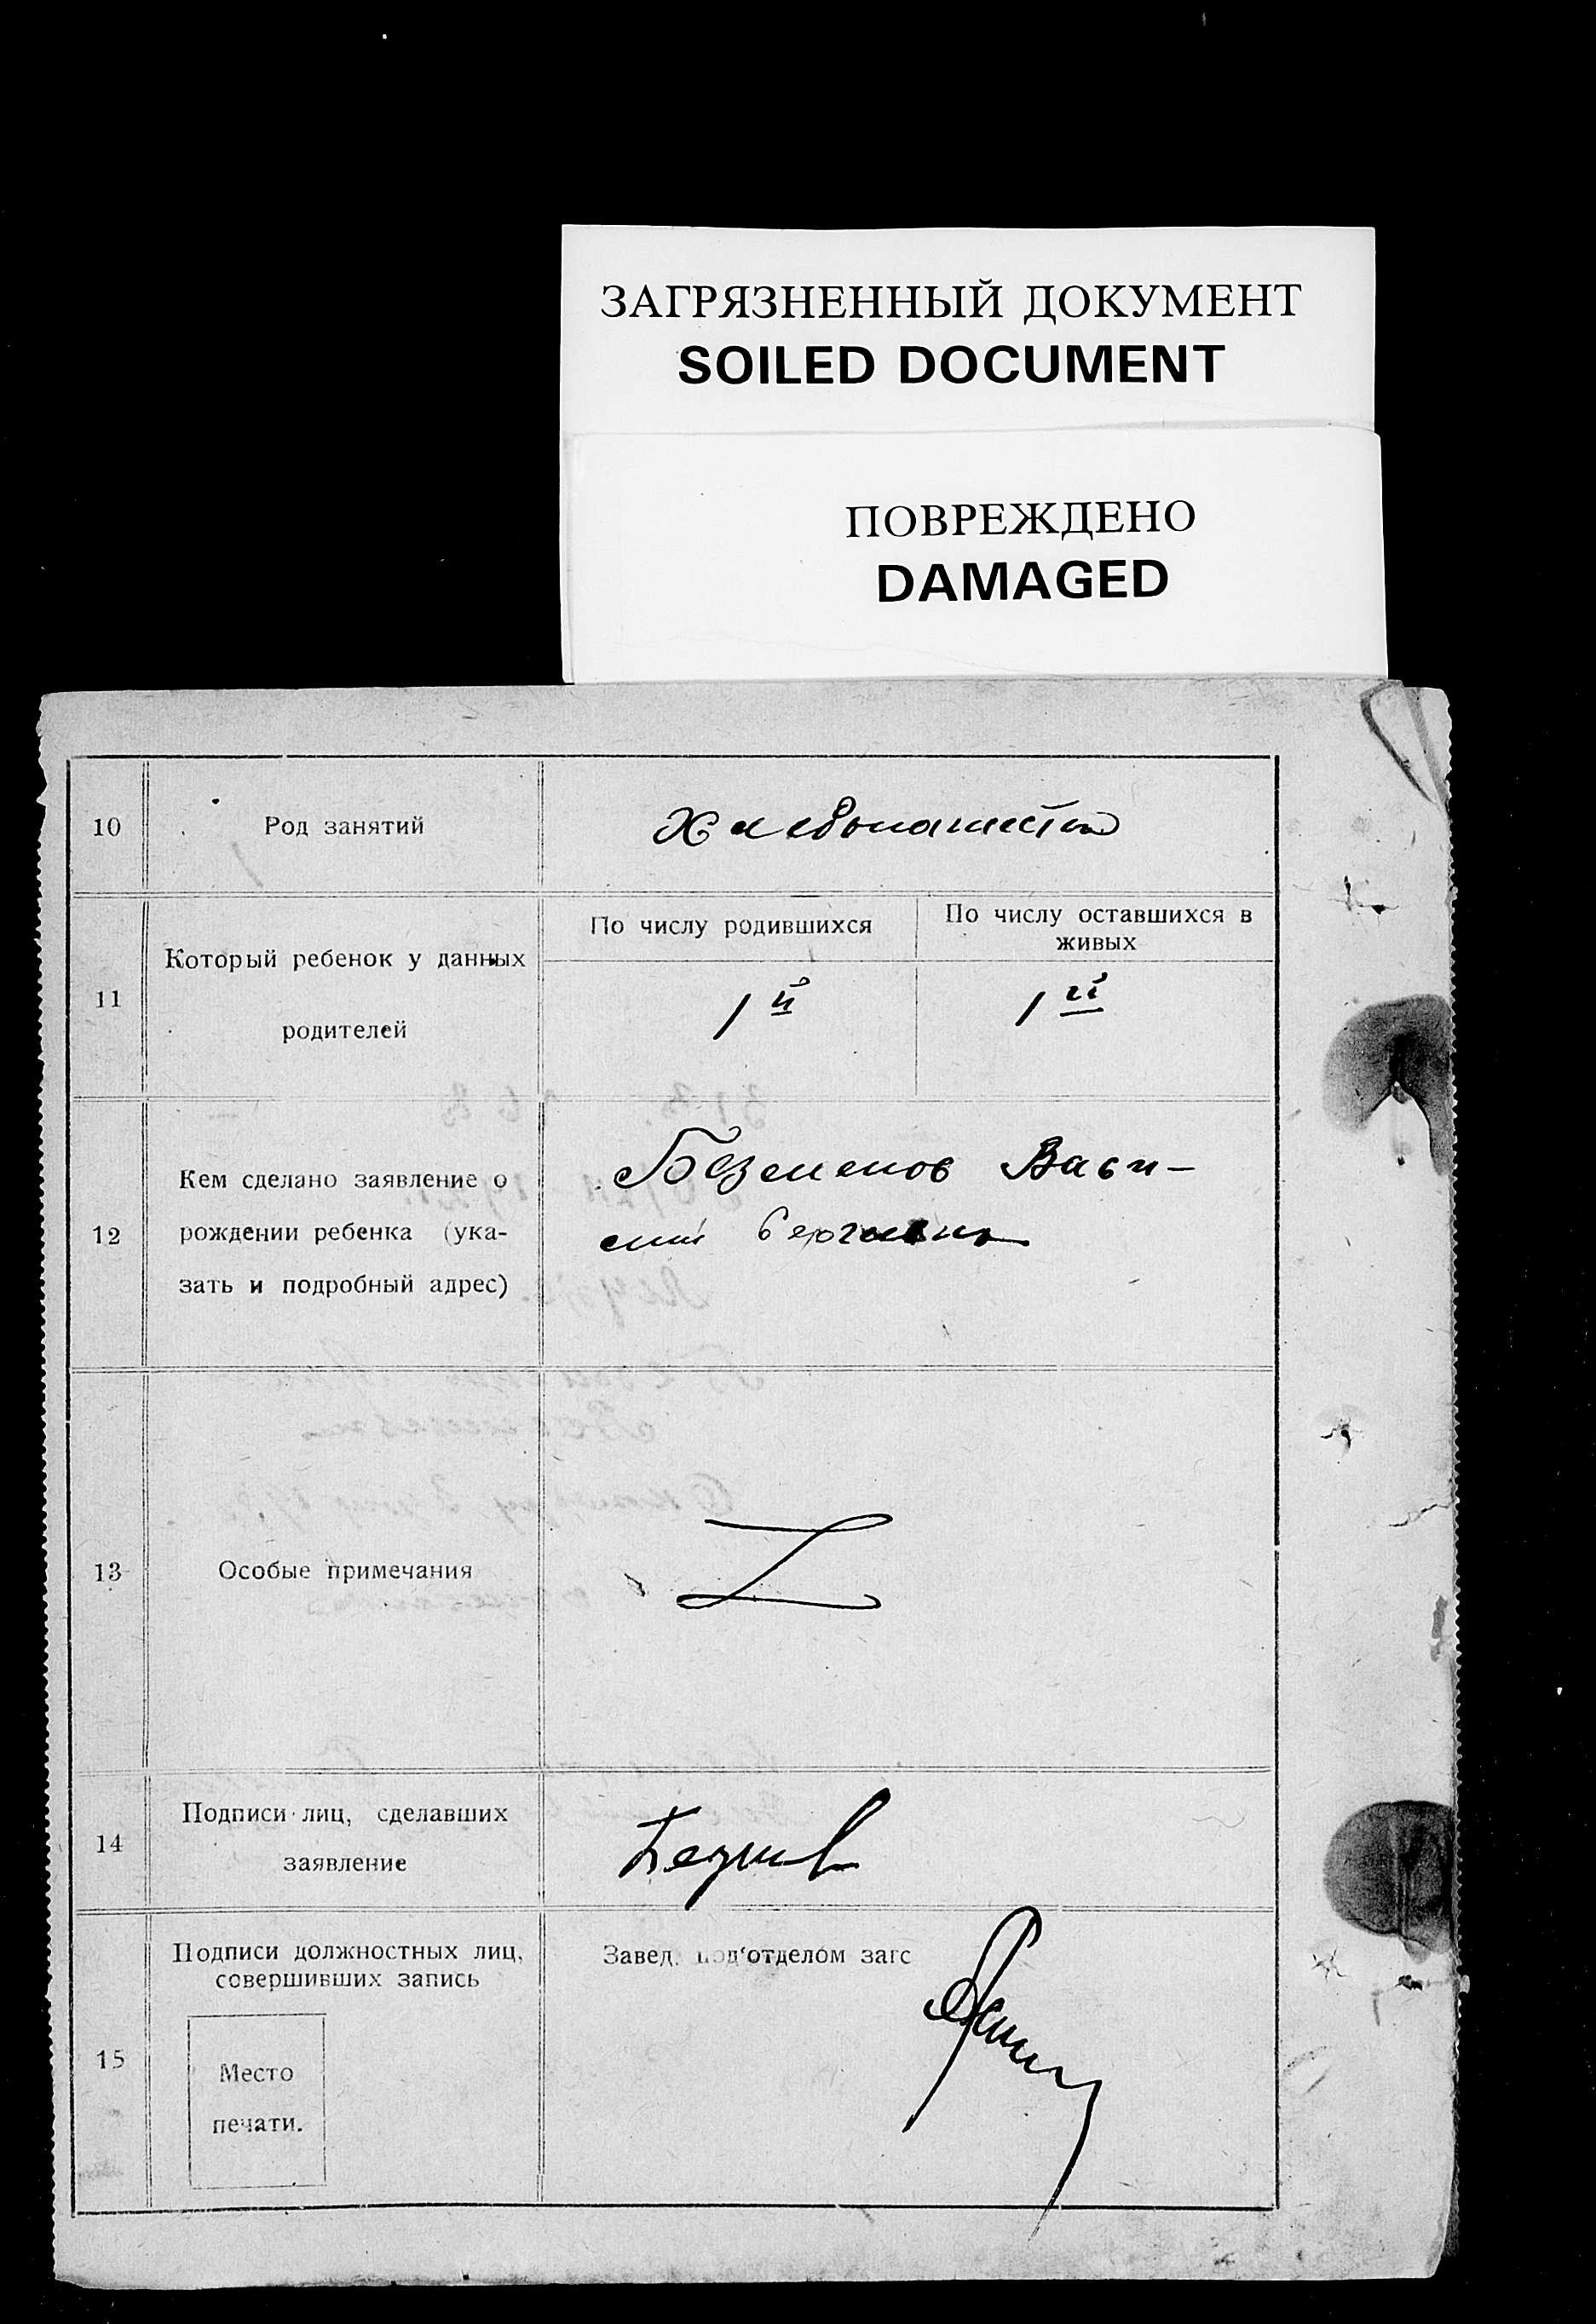 ЗАГРЯЗНЕННЫЙ ДОКУМЕНТ
SOILED DOCUMENT
ПОВРЕЖДЕНО
DAMAGED
10
Род занятий
Хлебопашество
11
Который ребенок у данных
родителей
По числу родившихся
1й
По числу оставшихся в
живых
1й
12
Кем сделано заявление о
рождении ребенка (ука-
зать и подробный адрес)
Безменов Васи-
лий Сергеевич
13
Особые примечания
14
Подписи лиц, сделавших
заявление
15
Подписи должностных лиц,
совершивших запись
Место
печати.
Завед. подотделом загс